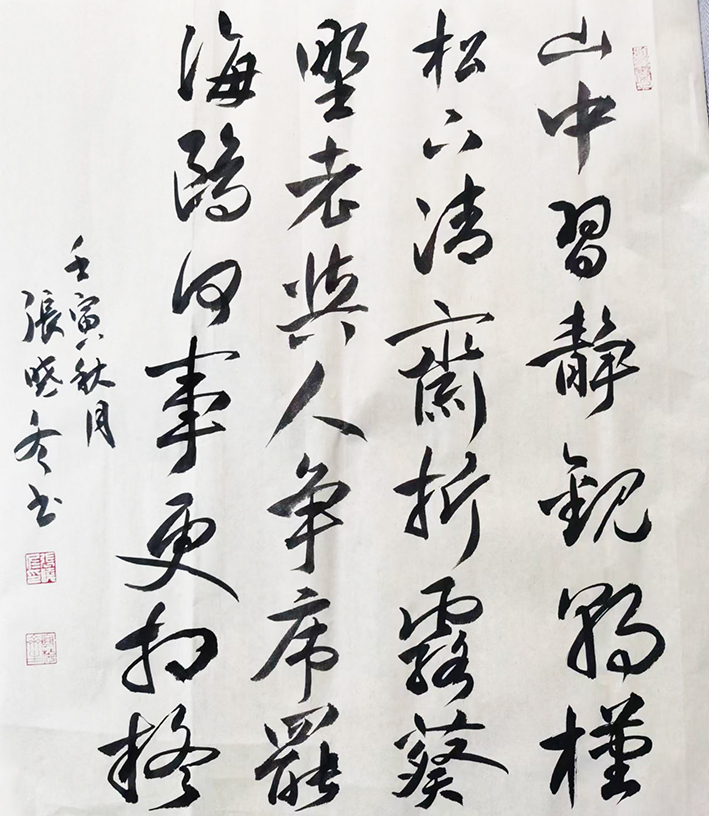 山中習静觀朝槿
松下清齋折露葵
野老與人争席罷
海鷗何事更相疑
壬寅秋月
張晓冬书